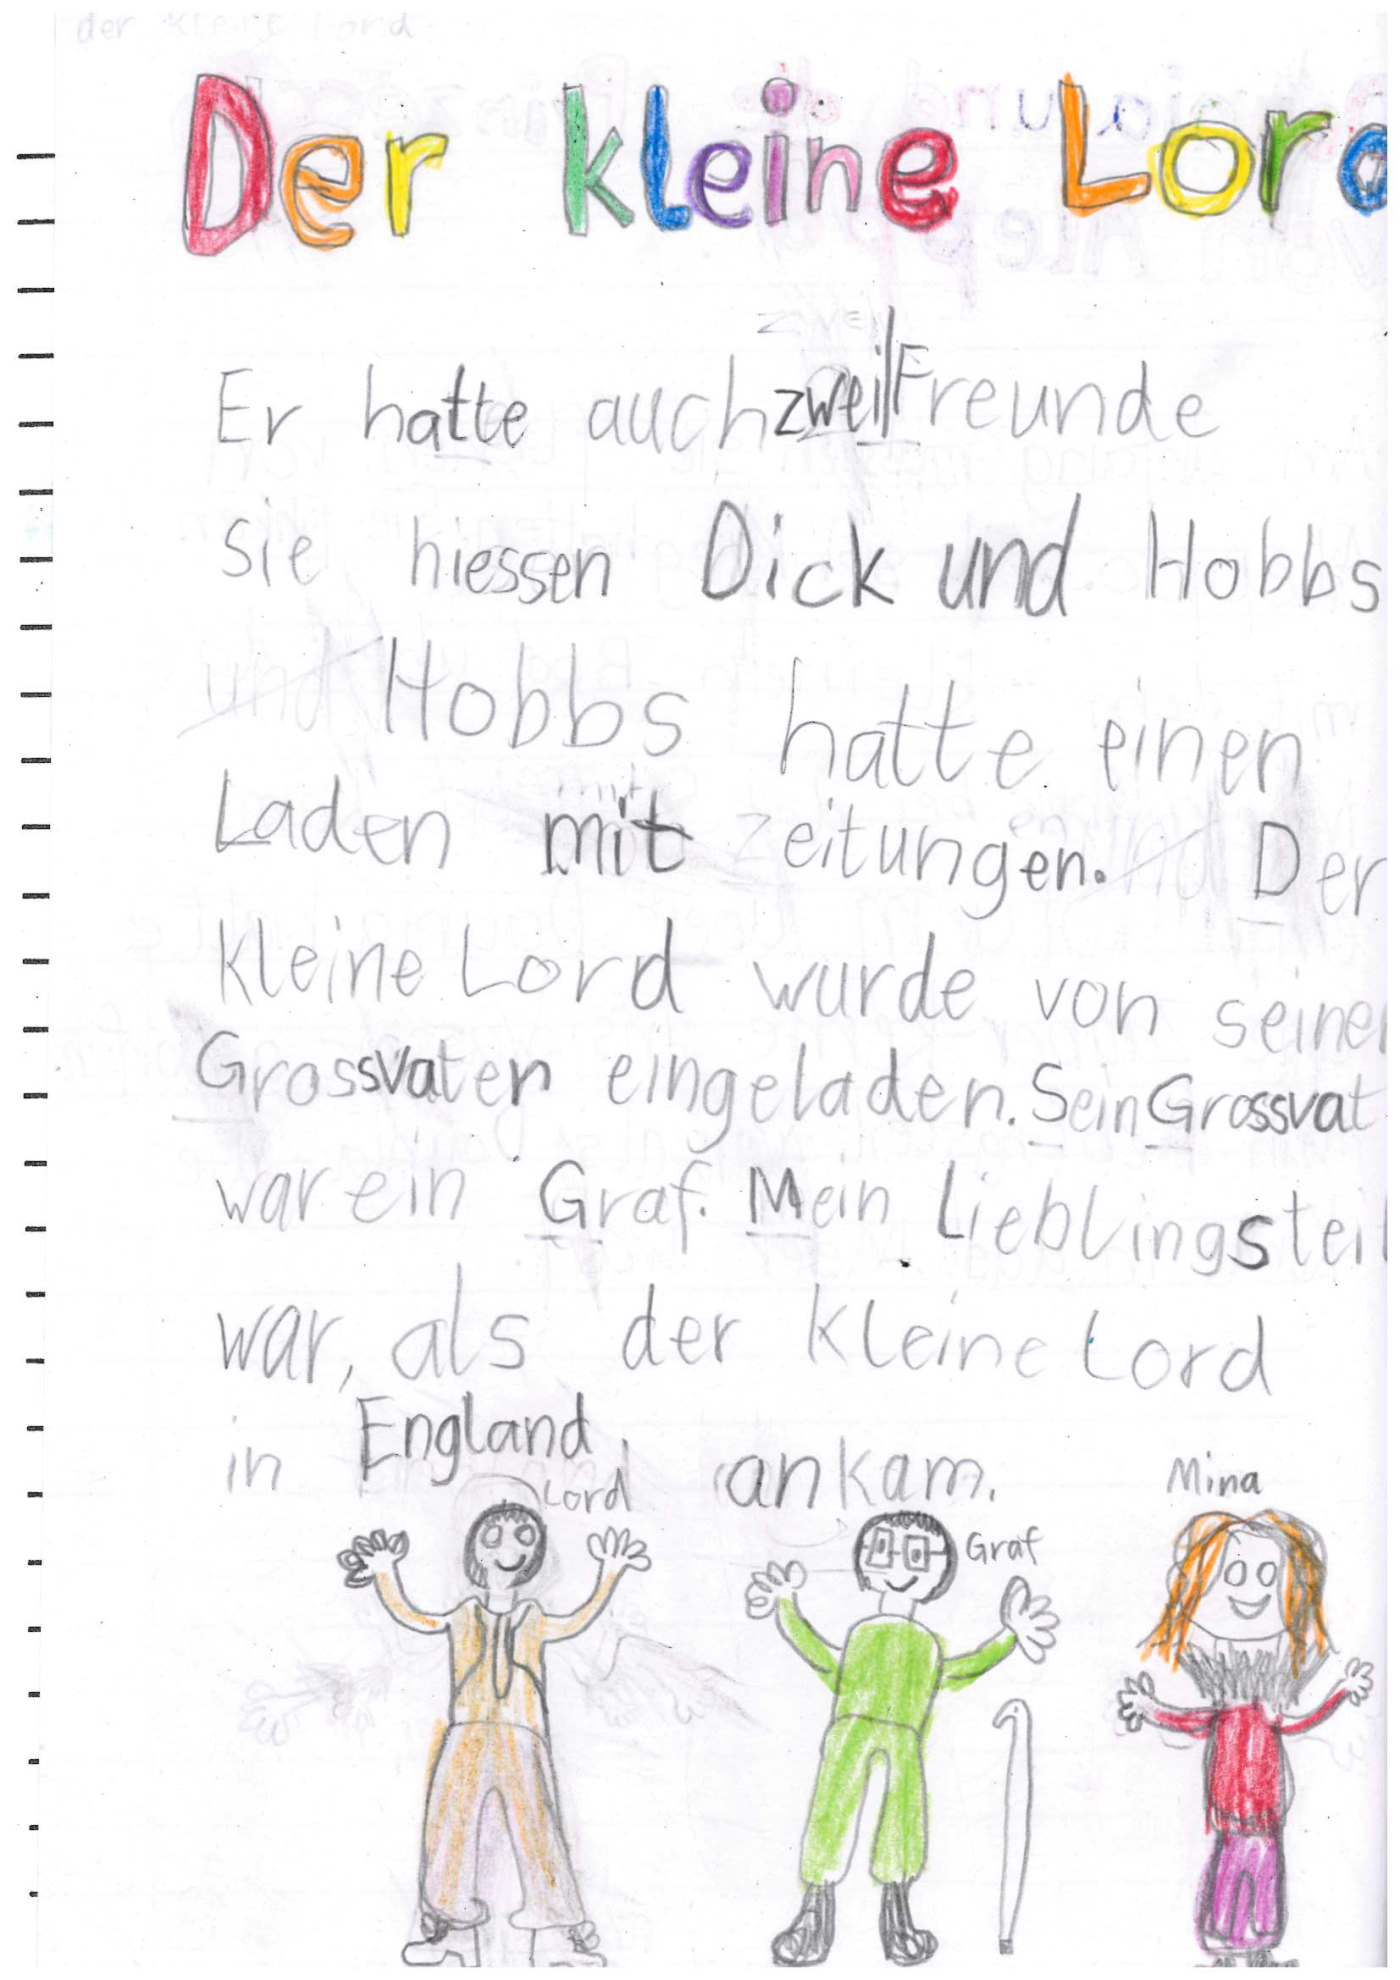 der kleine Lord
Der kleine Lord
zwei
Er hatte auch zwei Freunde
Sie hiessen Dick und Hobbs
und Hobbs hatte einen
mit
Laden mit zeitungen. und Der
kleine Lord wurde von seine
Grossvater eingeladen. Sein Grossvat
war ein Graf. Mein Lieblingsteil
war, als der kleine Lord
in England ankam.
Lord
Graf
Mina